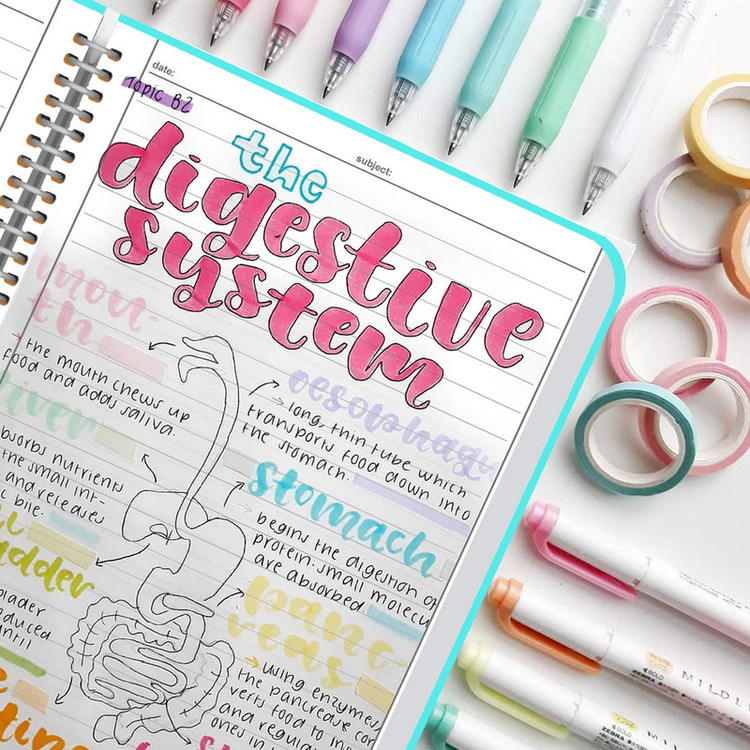 date:
TOPIC B2
subject:
the
digestive
system
mou-
th
the mouth chews up
food and adds saliva.
oesophagu
long, thin tube which
transports food down into
the stomach.
liver
absorbs nutrients
the small int-
and releases
bile.
stomach
begins the digestion of
protein. small molecu
are absorbed
panc-
reas
using enzymes,
the pancreas con
verts food to
and regula
ones in
dder
oduced
until
BOLD
ZEBRA
MILDL
BOLD
ZEBRA